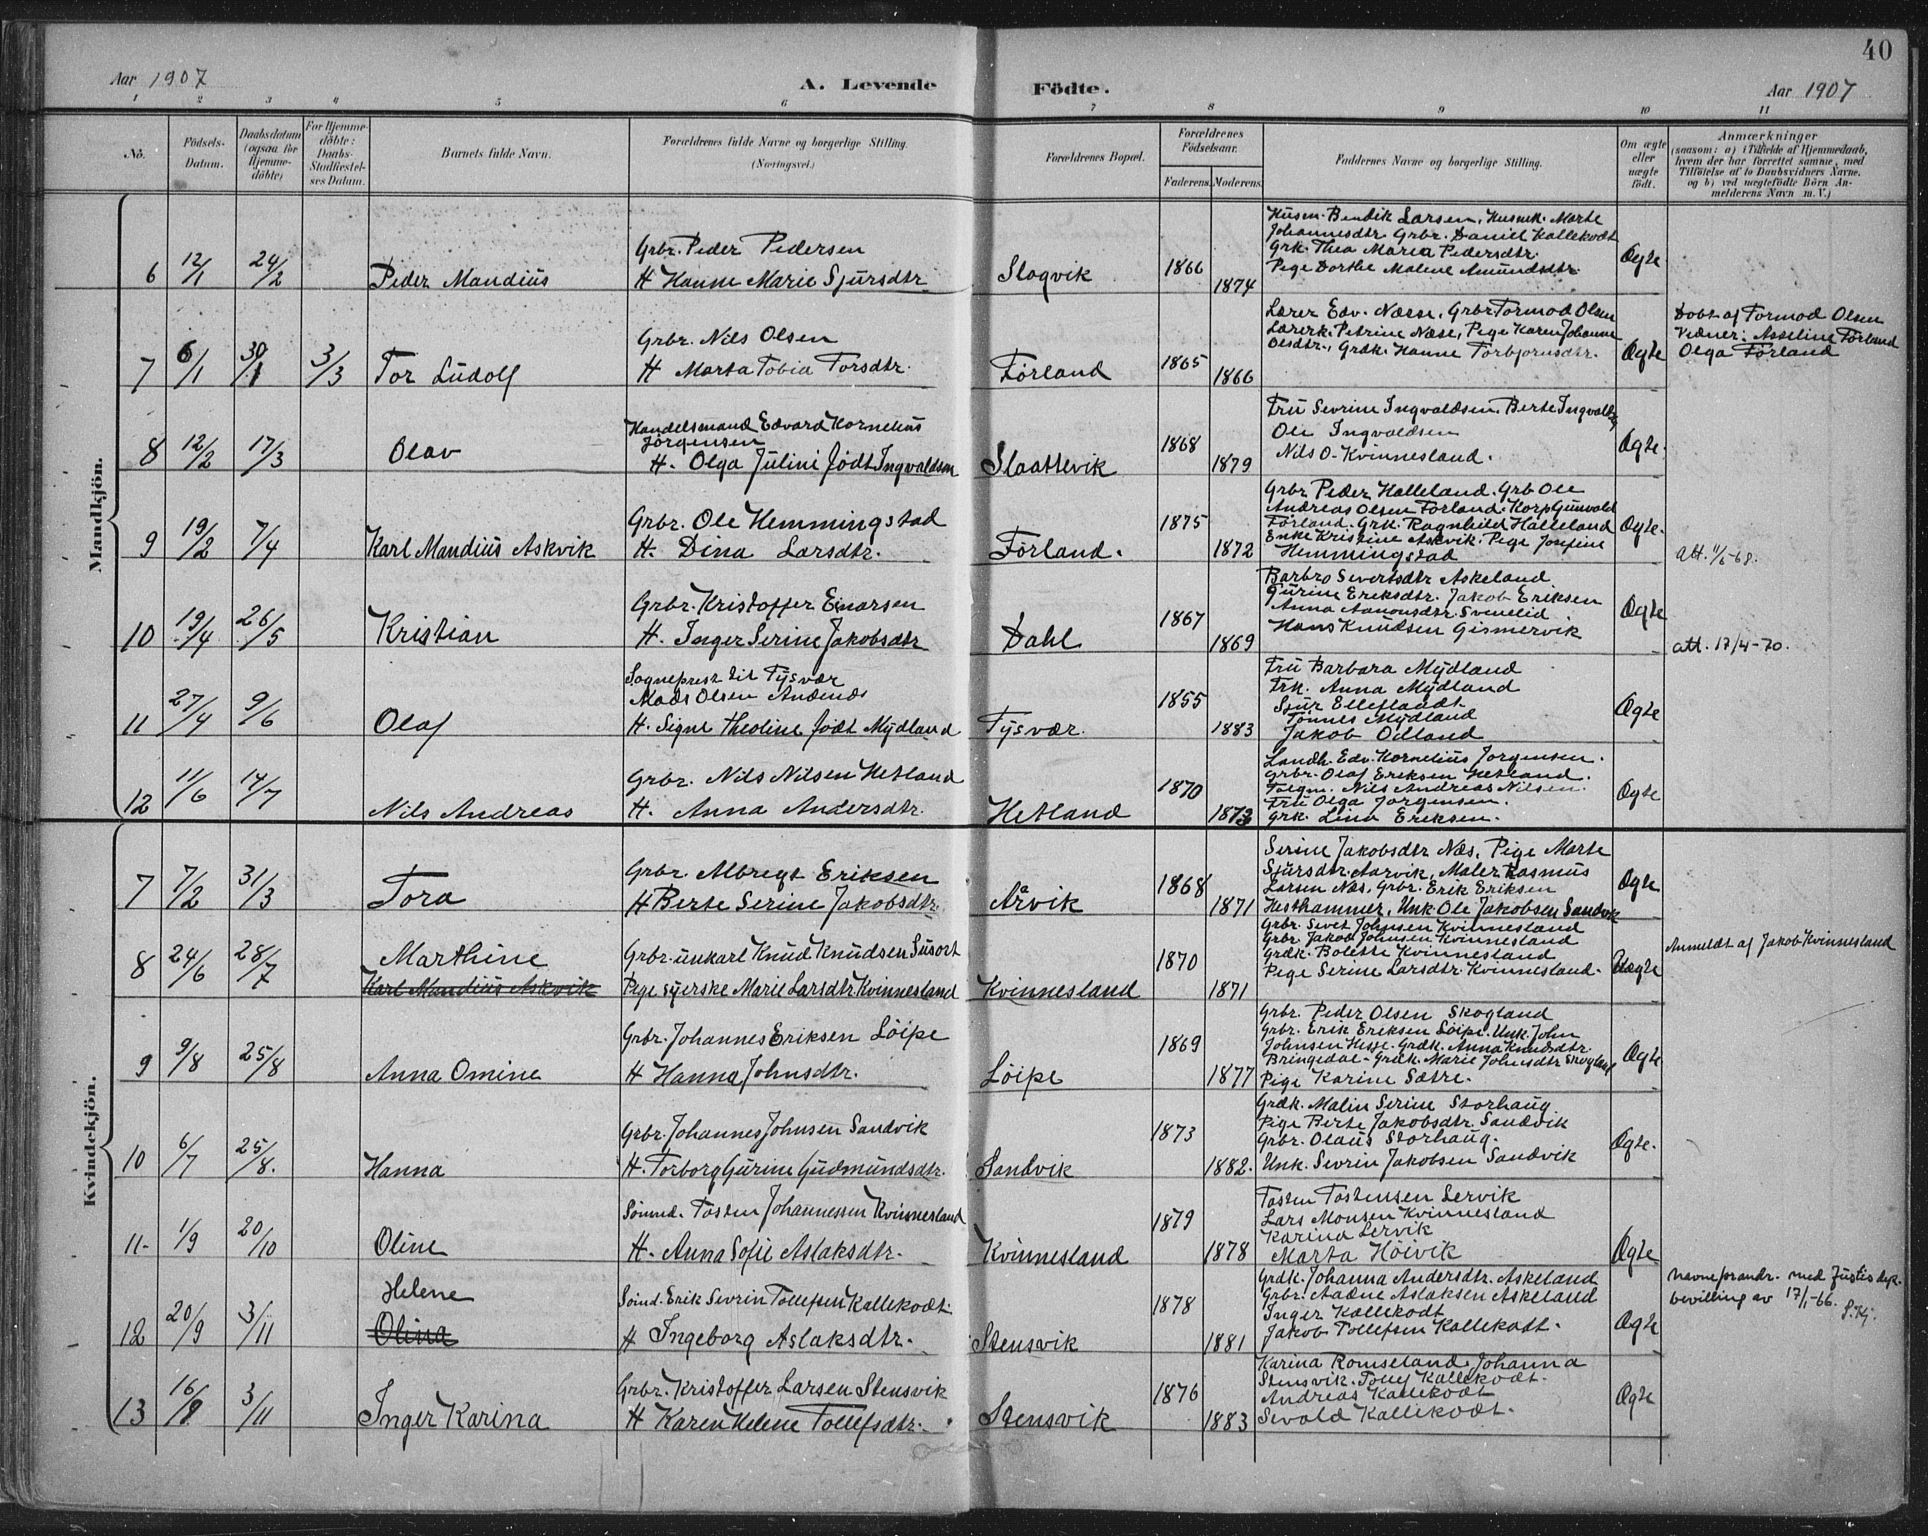 40
Aar 1907
A. Levende Födte.
Aar 1907
1 2 3 4 5 6 7 8 9 10 11
No.
Födsels-Datum.
Daabsdatum (ogsaa for Hjemme-döbte)
For Hjemme-döbte: Daabs-Stadfæstel-ses Datum.
Barnets fulde Navn.
Forældrenes fulde Navne og borgerlige Stilling. (Næringsvei.)
Forældrenes Bopæl.
Forældrenes Födselsaar.
Faderens. Moderens.
Faddernes Navne og borgerlige Stilling.
Om ægte eller uægte födt.
Anmærkninger
(saasom: a) i Tilfælde af Hjemmedaab,
hvem der har forrettet samme, med
Tilföielse af to Daabsvidners Navne,
og b) ved uægtefödte Börn An-
melderens Navn m. V.)
Mandkjön.
6 12/1 24/2 Peder Mandius
Grbr. Peder Pedersen
H Hanne Marie Sjursdtr
Slogvik 1866 1874
Husm. Bendik Larsen, Husmk. Marte
Johannesdtr. Grbr. Daniel Kallekodt
Grk. Thea Maria Pedersdtr.
Pige Dorthe Malene Amundsdtr
Ægte
7 6/1 30/1 3/3 Tor Ludolf
Grbr. Nils Olsen
H Marta Tobia Torsdtr.
Førland 1865 1866
Lærer Edv. Næsse, Grbr Tormod Olsen
Lærerk. Petrine Næse, Pige Karen Johanne
Olsdtr., Grdk. Hanne Torbjørnsdtr.
Ægte
Døbt af Tormod Olsen
Vidner: Asseline Førland
Olga Førland
8 12/2 17/3 Olav
Handelsmand Edvard Kornelius
Jörgensen
H. Olga Julini født Ingvaldsen
Slaattevik 1868 1879
Fru Sevrine Ingvaldsen. Berte Ingvalds
Ole Ingvaldsen
Nils O. Kvinnesland.
Ægte.
9 19/2 7/4 Karl Mandius Askvik
Grbr. Ole Hemmingstad
H. Dina Larsdtr.
Førland. 1875 1872
Grbr Peder Halleland. Grb Ole
Andreas Olsen Førland. Korp Gunvald
Førland. Grk. Ragnhild Halleland
Enke Kristine Askvik. Pige Josefine
Hemmingstad
Ægte.
att. 1/6-68.
10 19/4 26/5 Kristian
Grbr. Kristoffer Einarsen
H. Inger Serine Jakobsdtr
Dahl 1867 1869
Barbro Sivertsdtr Askeland
Gurine Eriksdtr. Jakob Eriksen
Anna Aanonsdtr. Svinelid
Hans Knudsen Gismervik
Ægte
att. 17/4-70.
11 27/4 9/6 Olaf
Sogneprest til Tysvær
Mads Olsen Andenæs
H. Signe Theoline født Mydland
Tysvær. 1855 1883
Fru Barbara Mydland
Frk. Anna Mydland
Sjur Elleflaadt
Tønnes Mydland
Jakob Odland
Ægte
12 11/6 14/7 Nils Andreas
Grbr. Nils Nilsen Hetland
H. Anna Andersdtr.
Hetland 1870 1873
Landh. Edv. Kornelius Jorgensen.
Grbr. Olaf Eriksen Hetland.
Nils Andreas Nilsen.
Fru Olga Jorgensen.
Grk. Lina Eriksen.
Ægte
Kvindekjön.
7 7/2 31/3 Tora
Grbr. Albregt Eriksen
H Berte Serine Jakobsdtr
Årvik 1868 1871
Serine Jakobsdtr Næs, Pige Marte
Sjursdtr. Aarvik, Maler Rasmus
Larsen Næs, Grbr. Erik Eriksen
Hesthammer, Unk Ole Jakobsen Sandvik
Ægte
8 24/6 28/7 Marthine
Karl Mandius Askvik
Grbr. unkarl Knud Knudsen Susort
Pige syerske Marie Larsdtr Kvinnesland
Kvinnesland 1870 1871
Grbr. Sivert Johnsen Kvinnesland
Grbr. Jakob Johnsen Kvinnesland
Grdk. Bolette Kvinnesland
Pige Serine Larsdtr. Kvinnesland.
Uægte
Anmeldt af Jakob Kvinnesland
9 9/8 25/8 Anna Omine
Grbr. Johannes Eriksen Löipe
H Hanna Johnsdtr.
Löipe 1869 1877
Grbr. Peder Olsen Skogland
Grbr. Erik Eriksen Löipe. Unk. John
Johnsen Hesse. Grdk. Anna Knudsdtr
Bringedal. Grdk. Marie Johnsdtr Skogland
Pige Karine Sætre.
Ægte
10 6/7 25/8. Hanna
Grbr. Johannes Johnsen Sandvik
H. Torborg Gurine Gudmundsdtr.
Sandvik 1873 1882.
Grdk. Malin Serine Storhaug
Pige Berte Jakobsdtr. Sandvik
Grbr. Olaus Storhaug.
Unk. Sevrin Jakobsen Sandvik
Ægte.
11. 1/9 20/10 Oline
Sömnd. Tosten Johannessen Kvinnesland
H. Anna Sofie Aslaksdtr.
Kvinnesland 1879 1878
Tosten Tostensen Lervik
Lars Monsen Kvinnesland
Karina Lervik
Marta Höivik
Ægte
12 20/9 3/11 Helene
Olina
Sömd. Erik Sevrin Tollefsen Kallekodt
H Ingeborg Aslaksdtr.
Stensvik 1878 1881
Grdk. Johanna Andersdtr. Askeland
Grbr. Aadne Aslaksen Askeland
Inger Kallekodt
Jakob Tollefsen Kallekodt.
Ægte
Navneforandr. med Justisdep.
bevilling av 17/1-66. S.Kj.
13 16/9 3/11 Inger Karina
Grbr. Kristoffer Larsen Stensvik
H Karen Helene Tollefsdtr.
Stensvik 1876 1883
Karina Romseland, Johanna
Stensvik. Kallekodt.
Andreas Kallekodt
Sevald Kallekodt.
Ægte